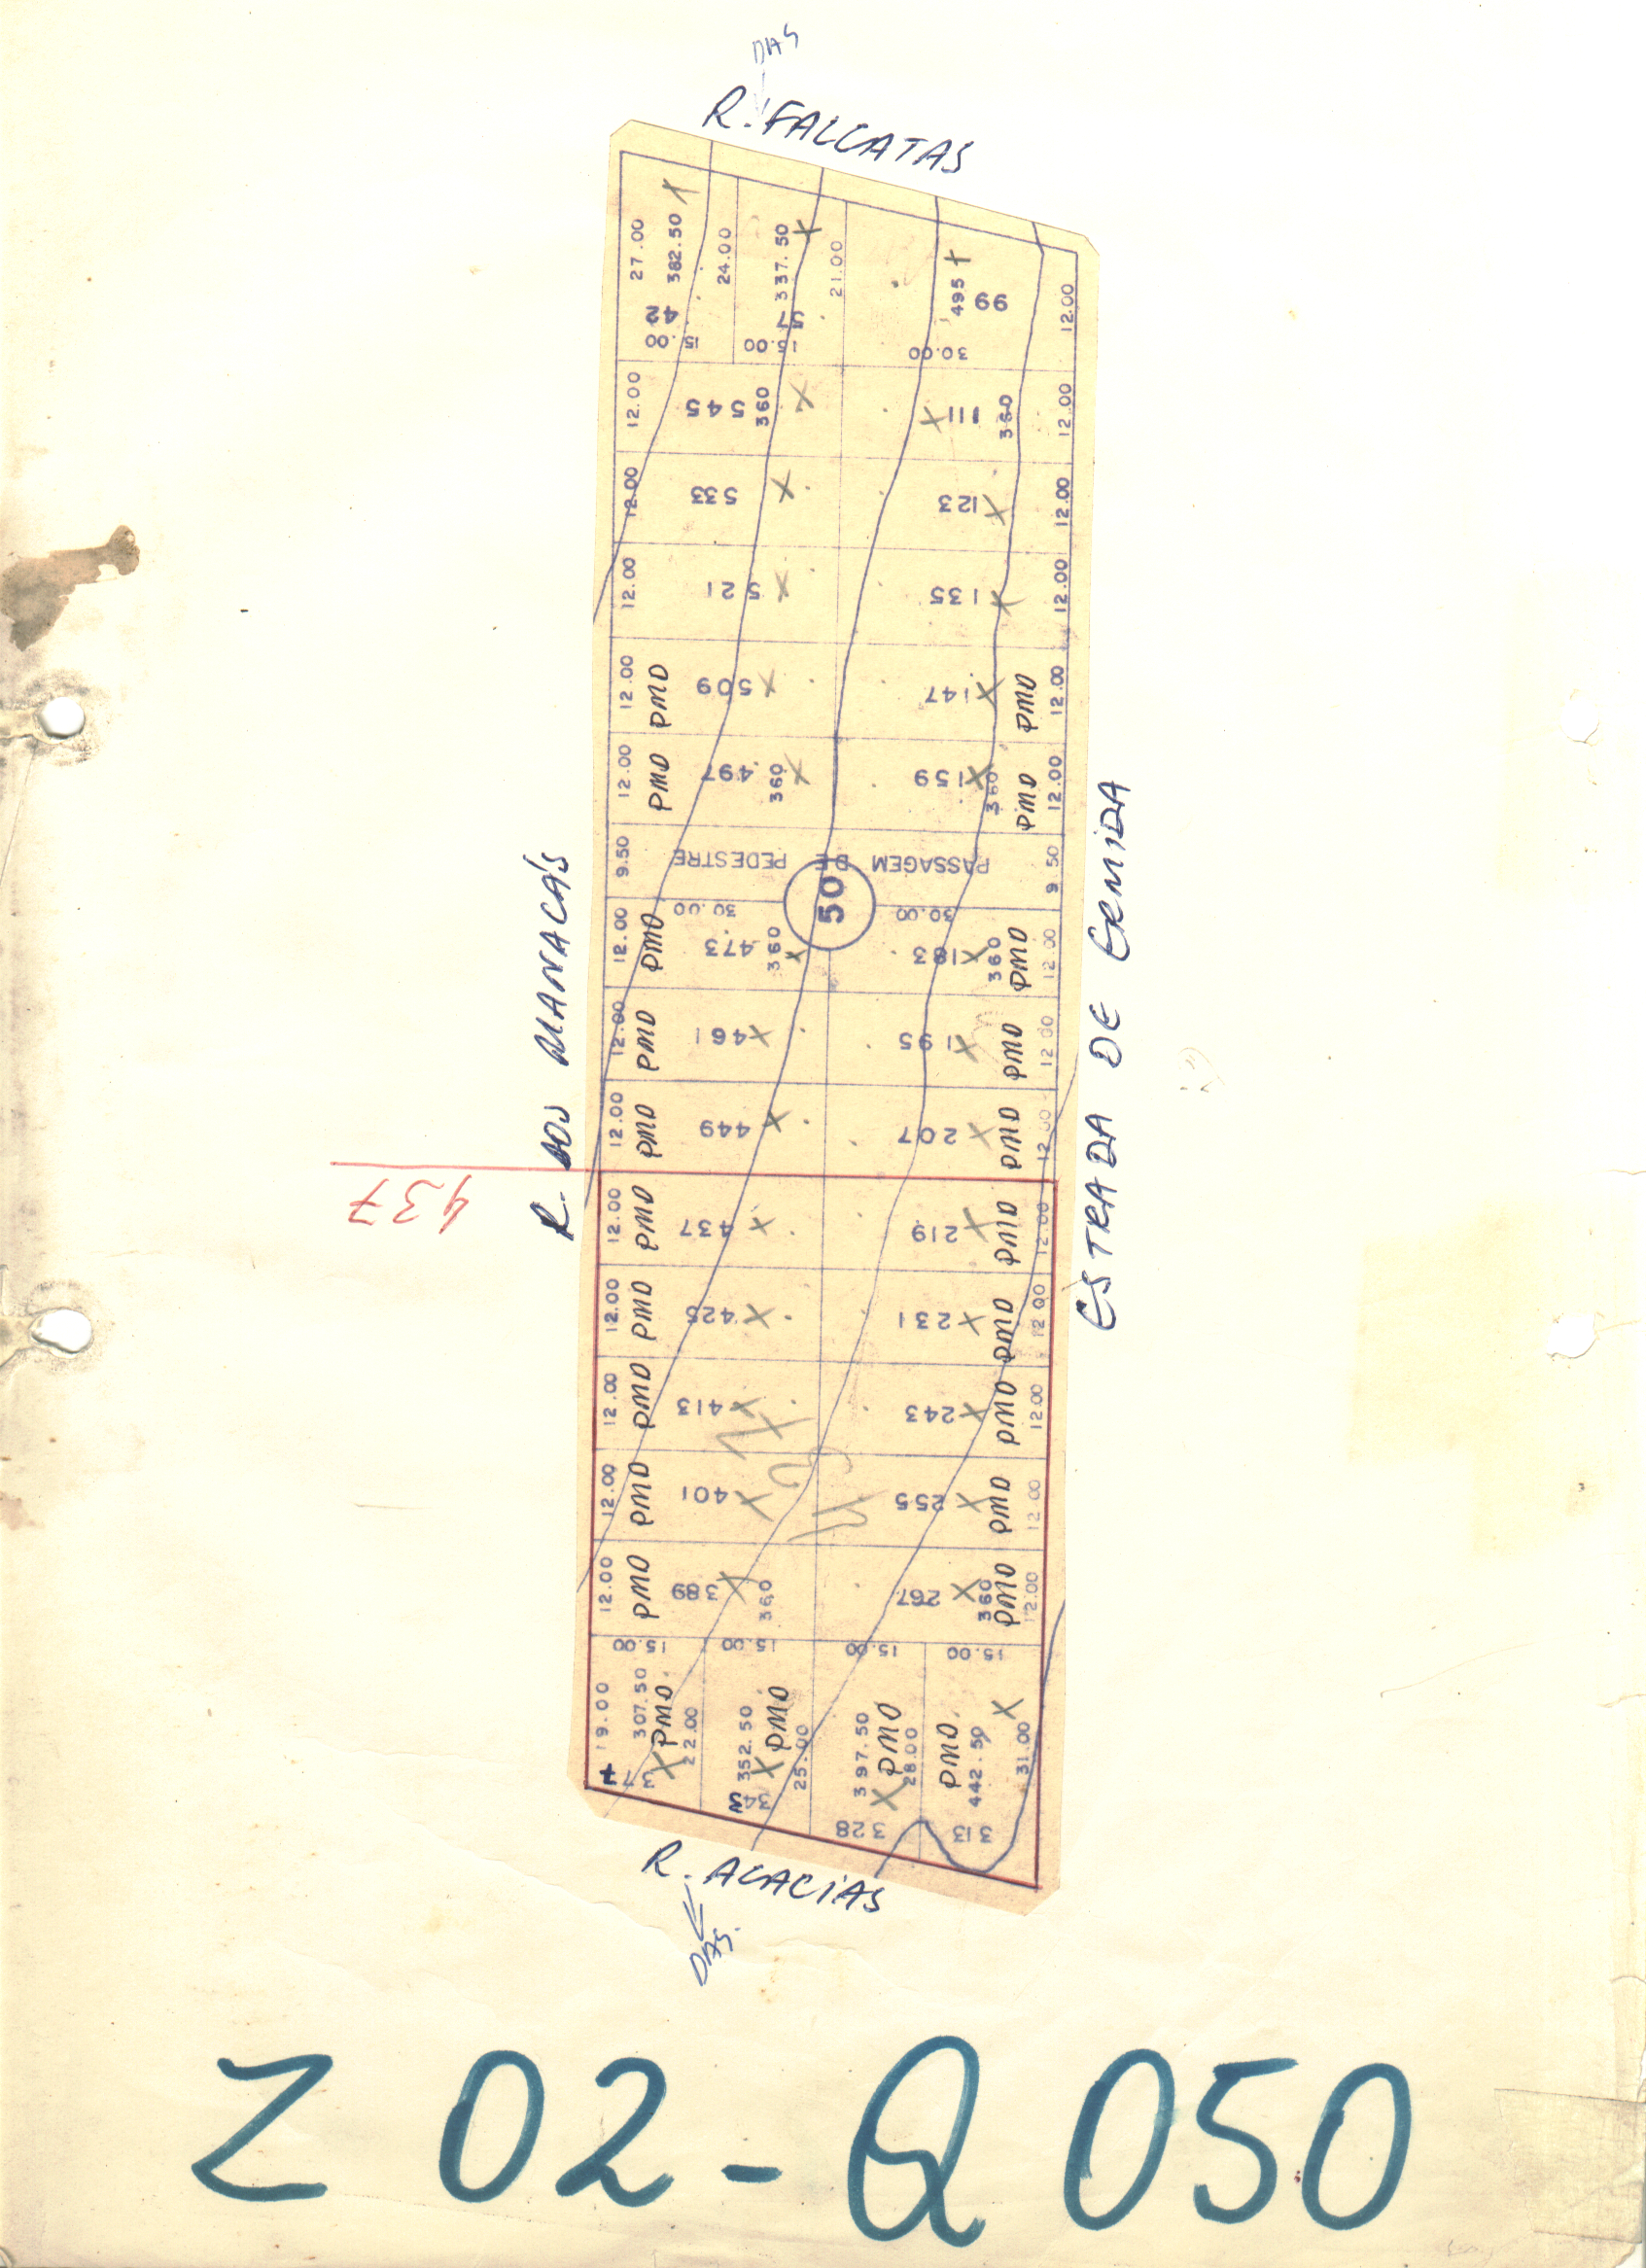 DAS
R. FALCATAS
27.00
382.50
24.00
42
15.00
337.50
21.00
57
15.00
495
99
30.00
12.00
12.00
545
360
111
360
12.00
12.00
533
123
12.00
12.00
521
135
12.00
12.00
PMD
509
147
PMD
12.00
12.00
PMD
497
360
159
360
PMD
12.00
9.50
PASSAGEM DE PEDESTRE
9 50
50
12.00
PMD
30.00
473
360
30.00
183
360
PMD
12.00
12.00
PMD
461
195
PMD
12 00
12.00
PMD
449
207
PMD
12.00
437
12.00
PMD
437
219
PMD
12.00
12.00
PMD
425
231
PMD
12 00
12.00
PMD
413
243
PMD
12.00
12.00
PMD
401
255
PMD
12 00
12.00
PMD
389
360
267
360
PMD
12.00
15.00
15.00
15.00
15.00
19.00
307.50
PMD.
22.00
37
7
352.50
PMD
25.00
343
397.50
PMD
28.00
328
PMD.
442.50
31.00
313
R. DOS MANACÁS
ESTRADA DE ERMIDA
R. ACACIAS
DAS.
Z 02 - Q 050